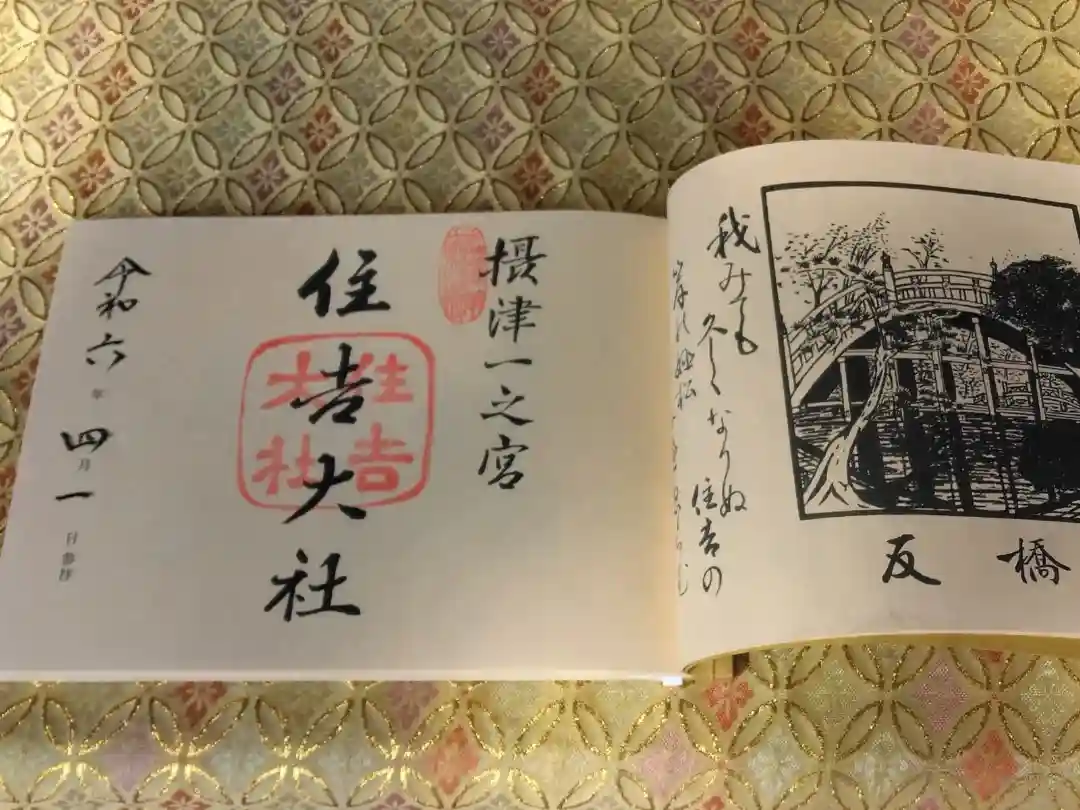 反橋
我みても
久しくなりぬ
住吉の
岸の姫松
摂津一之宮
住吉大社
住吉
大社
令和六年四月一日参拝